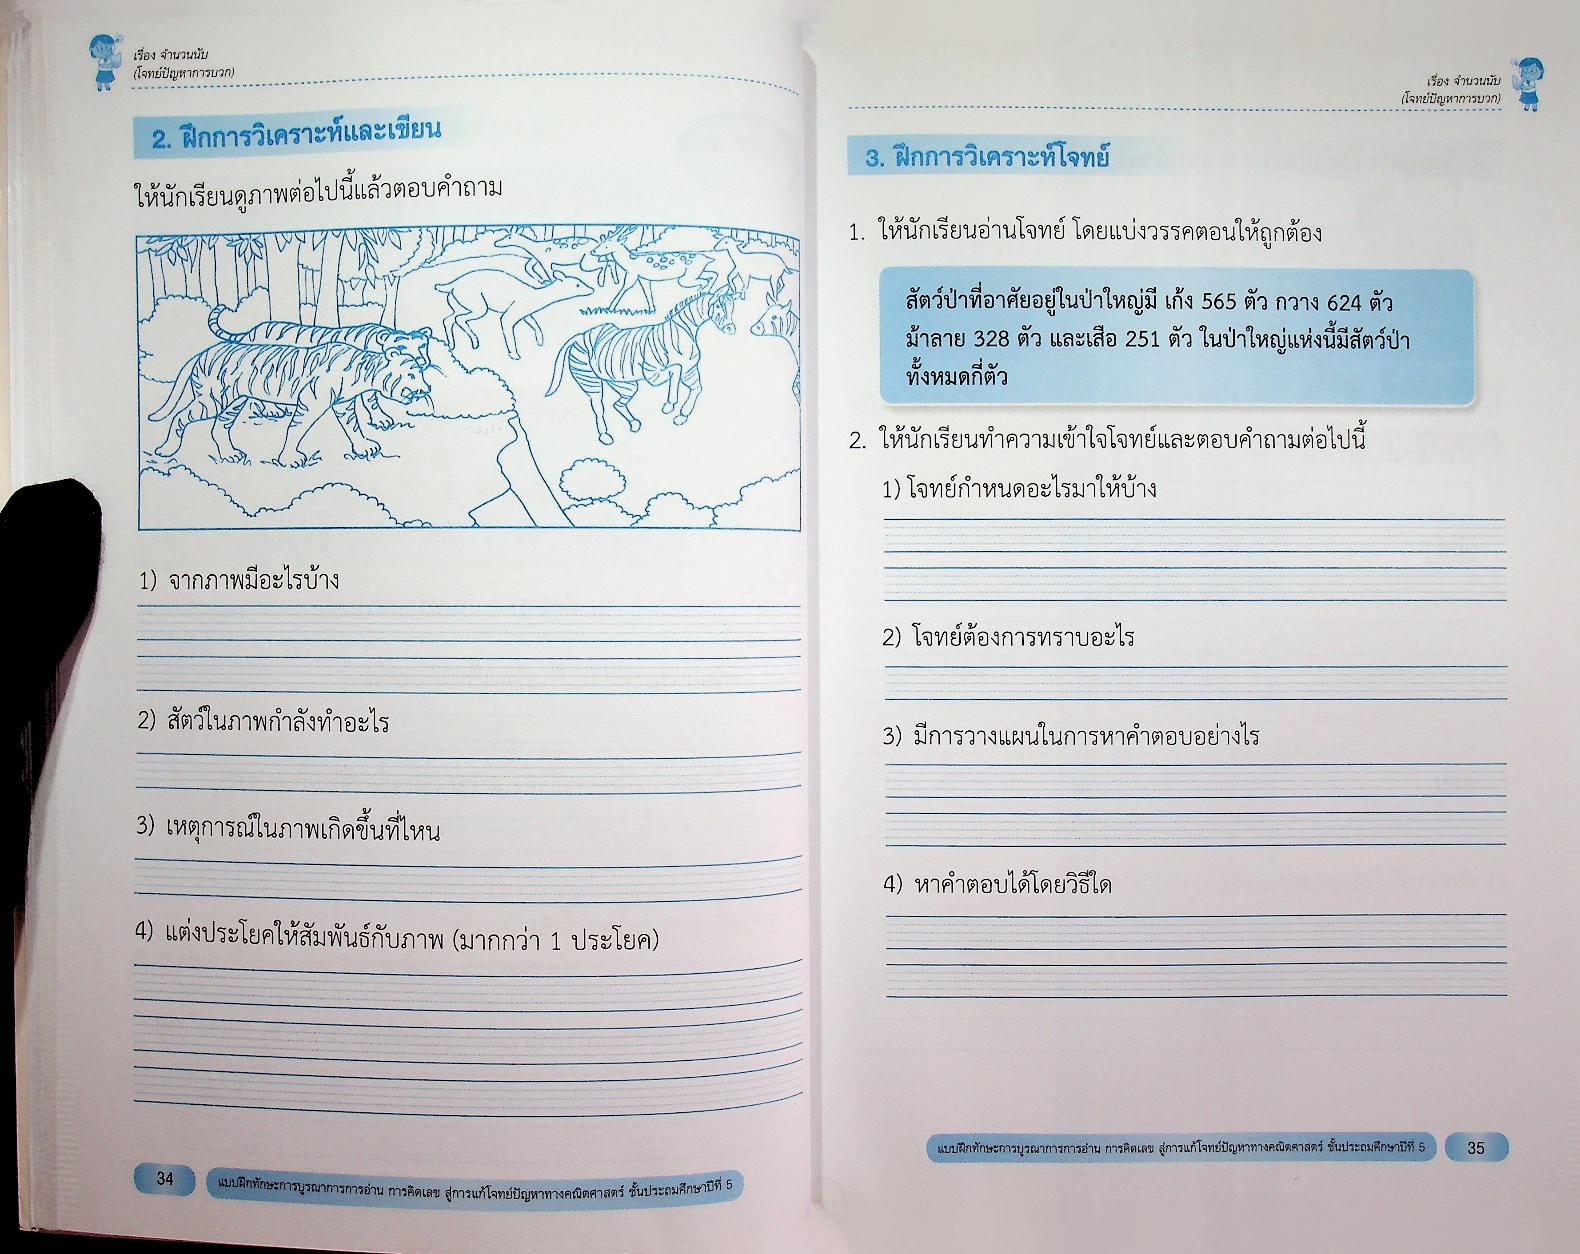 เรื่อง จำนวนนับ
(โจทย์ปัญหาการบวก)
2. ฝึกการวิเคราะห์และเขียน
ให้นักเรียนดูภาพต่อไปนี้แล้วตอบคำถาม
1) จากภาพมีอะไรบ้าง
2) สัตว์ในภาพกำลังทำอะไร
3) เหตุการณ์ในภาพเกิดขึ้นที่ไหน
4) แต่งประโยคให้สัมพันธ์กับภาพ (มากกว่า 1 ประโยค)
34 แบบฝึกทักษะการบูรณาการการอ่าน การคิดเลข สู่การแก้โจทย์ปัญหาทางคณิตศาสตร์ ชั้นประถมศึกษาปีที่ 5
เรื่อง จำนวนนับ
(โจทย์ปัญหาการบวก)
3. ฝึกการวิเคราะห์โจทย์
1. ให้นักเรียนอ่านโจทย์ โดยแบ่งวรรคตอนให้ถูกต้อง
สัตว์ป่าที่อาศัยอยู่ในป่าใหญ่มี เก้ง 565 ตัว กวาง 624 ตัว
ม้าลาย 328 ตัว และเสือ 251 ตัว ในป่าใหญ่แห่งนี้มีสัตว์ป่า
ทั้งหมดกี่ตัว
2. ให้นักเรียนทำความเข้าใจโจทย์และตอบคำถามต่อไปนี้
1) โจทย์กำหนดอะไรมาให้บ้าง
2) โจทย์ต้องการทราบอะไร
3) มีการวางแผนในการหาคำตอบอย่างไร
4) หาคำตอบได้โดยวิธีใด
แบบฝึกทักษะการบูรณาการการอ่าน การคิดเลข สู่การแก้โจทย์ปัญหาทางคณิตศาสตร์ ชั้นประถมศึกษาปีที่ 5 35